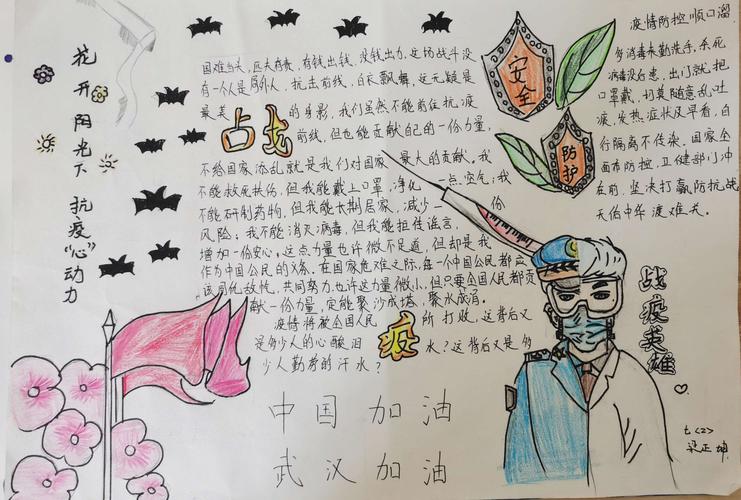 花开阳光下
抗疫“心”动力
国难当头，匹夫有责，有钱出钱，没钱出力，这场战斗没
有一个人是局外人，抗击前线，白衣飘舞，这无疑是
最美的身影，我们虽然不能前往抗疫
前线，但也能贡献自己的一份力量，
占战
不给国家添乱就是我们对国家最大的贡献。我
不能救死扶伤，但我能戴上口罩，净化一点空气；我
不能研制药物，但我能长期居家，减少一份
风险；我不能消灭病毒，但我能拒传谣言，
增加一份安心。这点力量也许微不足道，但却是我
作为中国公民的义务，在国家危难之际，每一个中国公民都应
该同仇敌忾，共同努力，也许这力量微小，但只要全国人民都贡
献一份力量，定能聚沙成塔，聚水成涓。
疫情将被全国人民所打败，这背后又
是多少人的心酸泪水？这背后又是多
少人勤劳的汗水？
疫
中国加油
武汉加油
安全
防护
疫情防控顺口溜
多消毒来勤洗手，杀死
病毒没自患，出门就把
口罩戴，切莫随意乱吐
痰，发热症状及早看，自
行隔离不传染。国家全
面布防控，卫健部门冲
在前，坚决打赢防抗战
天佑中华渡难关。
战疫英雄
七<2>
梁正坤